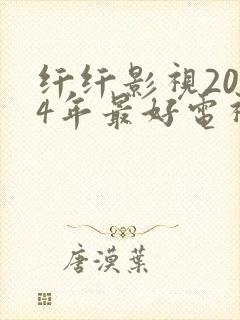 纤纤影視20
4年最好電視
唐漠葉